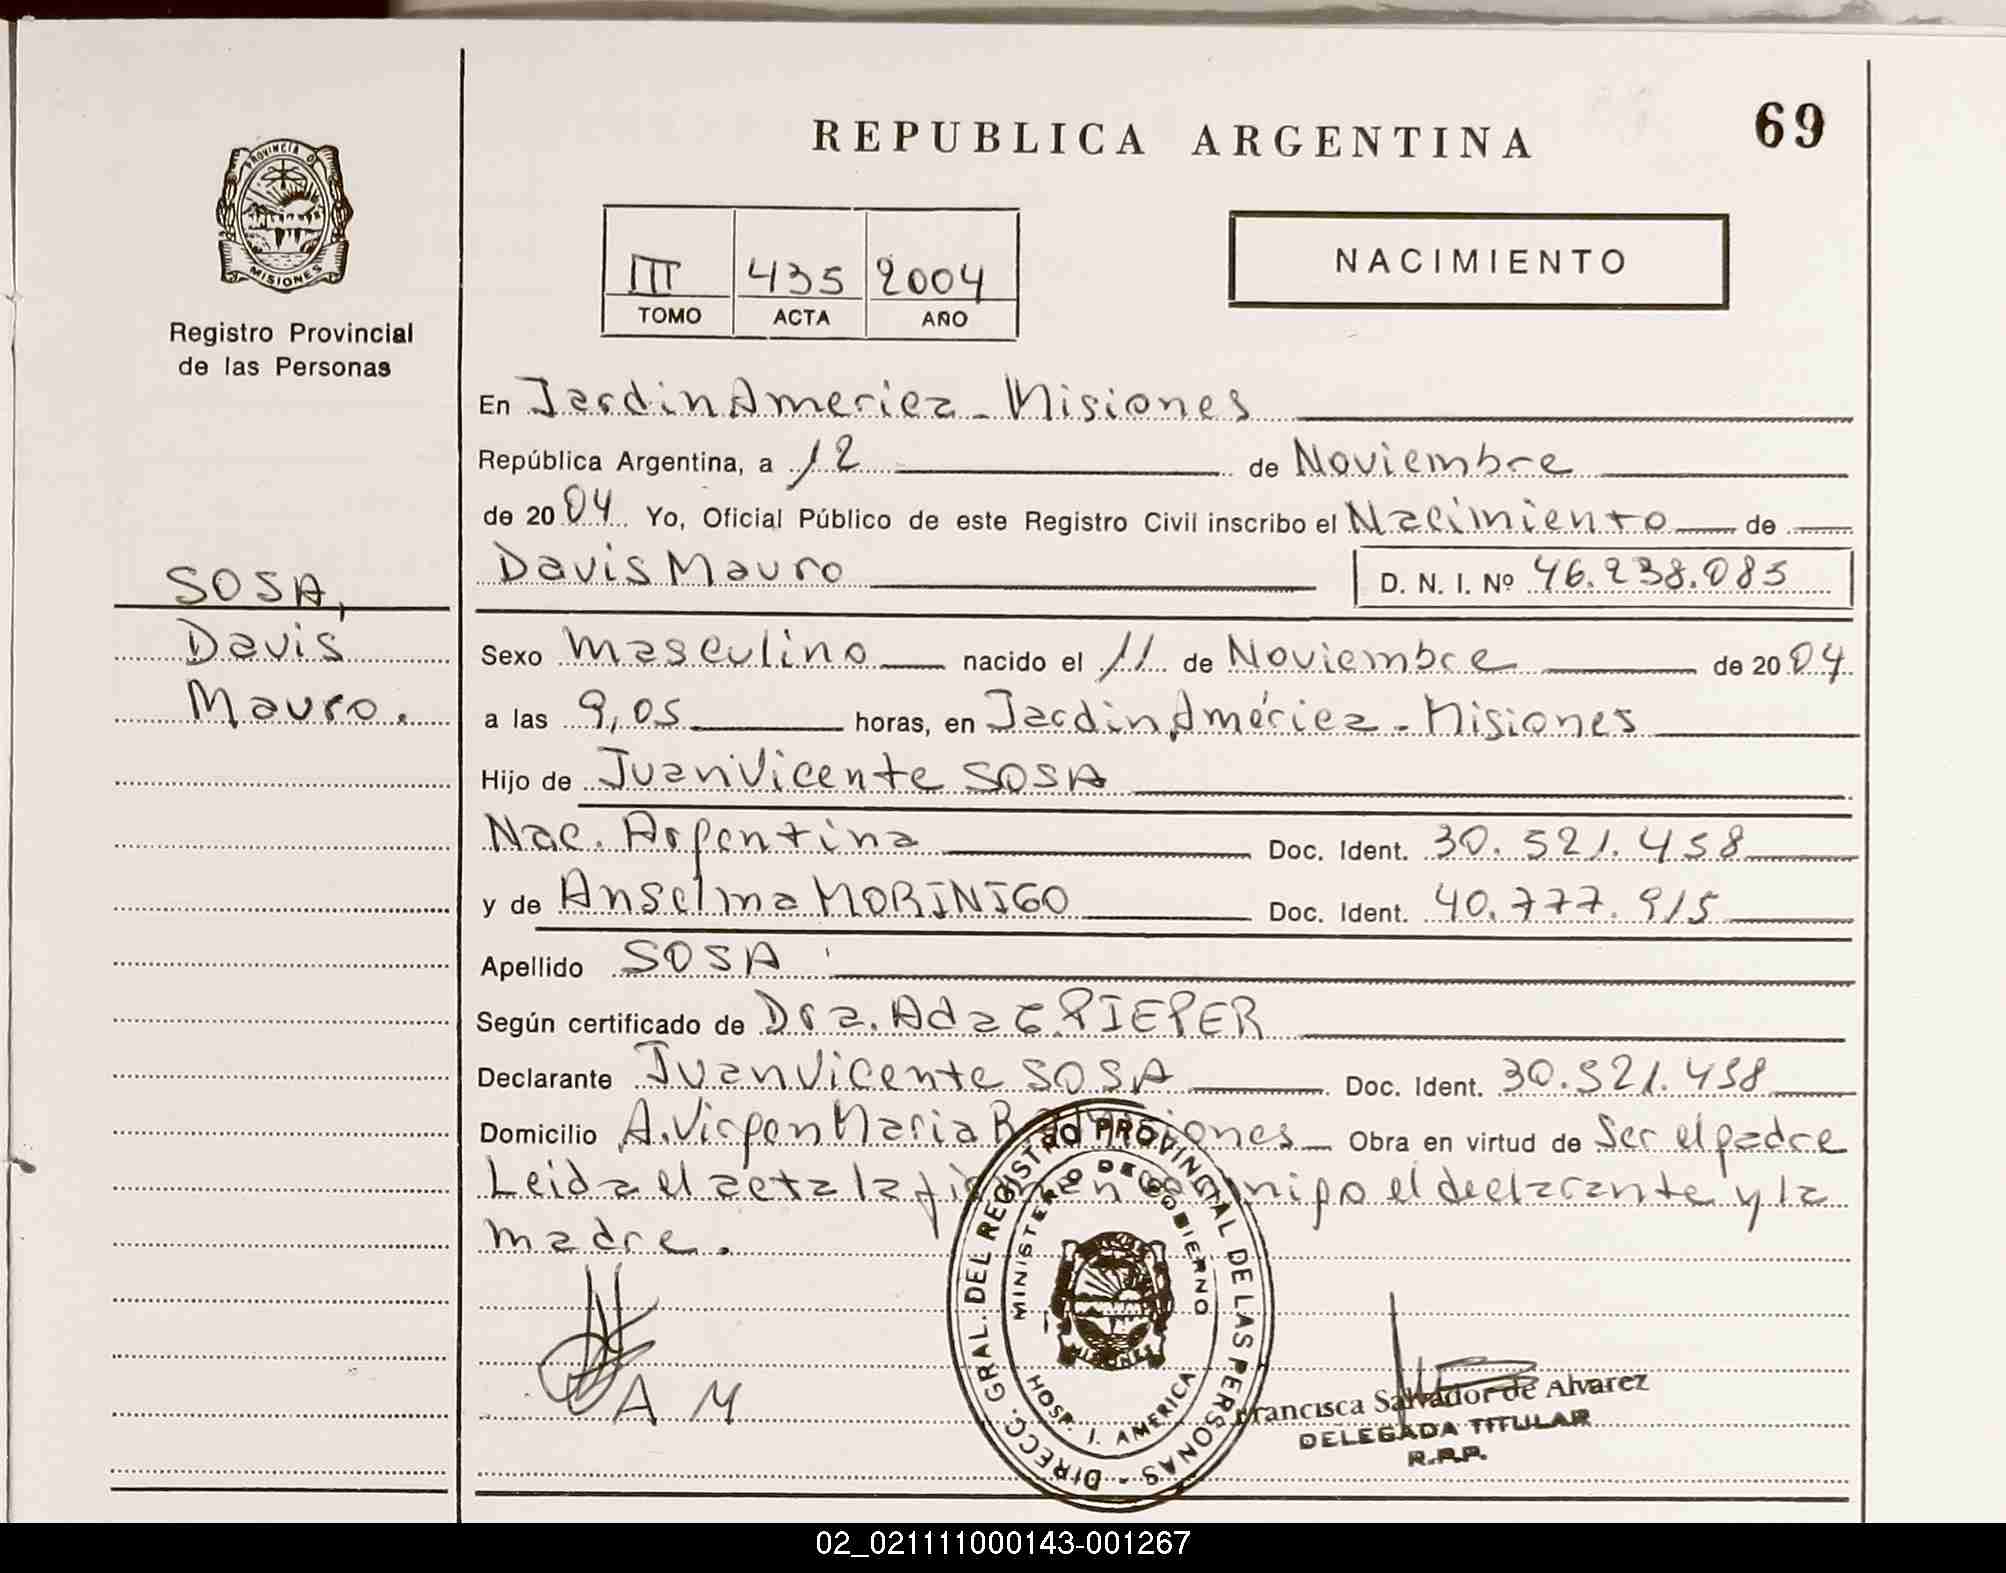 REPUBLICA ARGENTINA
69
PROVINCIA D
MISIONES
Registro Provincial
de las Personas
III 435 2004
TOMO ACTA AÑO
NACIMIENTO
En Jardin America - Misiones
República Argentina, a 12 de Noviembre
de 2004 Yo, Oficial Público de este Registro Civil inscribo el Nacimiento de
Davis Mauro D. N. I. Nº 46.238.085
SOSA,
Davis
Mauro.
Sexo Masculino nacido el 11 de Noviembre de 2004
a las 9,05 horas, en Jardin América - Misiones
Hijo de Juan Vicente SOSA
Nac. Argentina Doc. Ident. 30.521.458
y de Anselma MORINIGO Doc. Ident. 40.777.915
Apellido SOSA
Según certificado de Dra. Ada PIEPER
Declarante Juan Vicente SOSA Doc. Ident. 30.521.458
Domicilio A. Virgen Maria Misiones Obra en virtud de Ser el padre
Leida el acta la firman conmigo el declarante y la
madre.
A M
DIRECC. GRAL. DEL REGISTRO PROVINCIAL DE LAS PERSONAS -
MINISTERIO DE GOBIERNO
MISIONES
HOSP. J. AMERICA
Francisca Salvador de Alvarez
DELEGADA TITULAR
R.P.P.
02_021111000143-001267